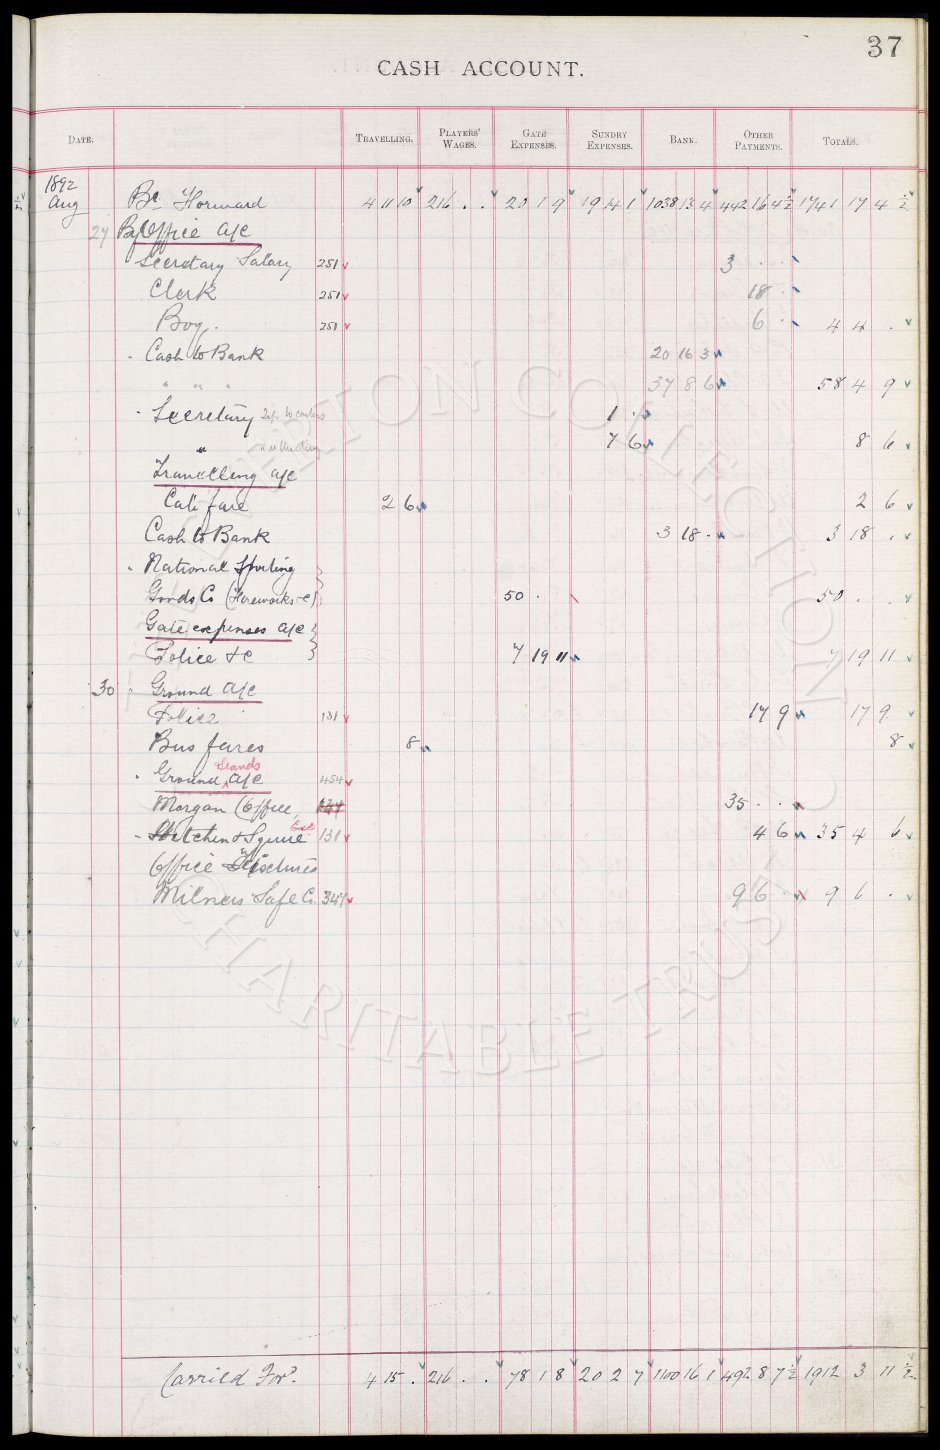 37
CASH ACCOUNT.
DATE. TRAVELLING. PLAYERS' WAGES. GATE EXPENSES. SUNDRY EXPENSES. BANK. OTHER PAYMENTS. TOTALS.
1892
Aug Bt Forward 4 11 10 216 . . 20 1 9 19 14 1 1038 13 4 442 16 4½ 1741 17 4½
27 By Office a/c
Secretary Salary 251 3 . .
Clerk 251 18 .
Boy. 251 6 . 4 4 .
" Cash to Bank 20 16 3
" " " 37 8 6 58 4 9
" Secretary 1 .
" 7 6 8 6
Travelling a/c
Cab fare 2 6 2 6
Cash to Bank 3 18 . 3 18 .
" National Sporting
Goods Co (Fireworks &c) 50 . 50 . .
Gate expenses a/c
Police &c 7 19 11 7 19 11
30 " Ground a/c
Police 131 17 9 17 9
Bus fares 8 8
Stands
" Ground a/c 454
Morgan (Office, 35 . .
" & Squire 131 4 6 35 4 6
Office Fixtures
Milners Safe Co. 347 9 6 . 9 6 .
Carried For'd 4 15 . 216 . . 78 1 8 20 2 7 1100 16 1 492 8 7½ 1912 3 11½
EVERTON COLLECTION CHARITABLE TRUST